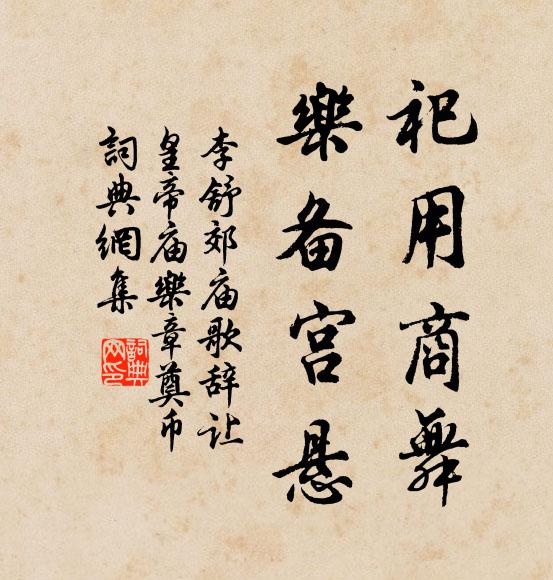 祀用商舞
樂备宫悬
李舒郊庙歌辞让
皇帝庙樂章奠币
詞典網集
詞典网印